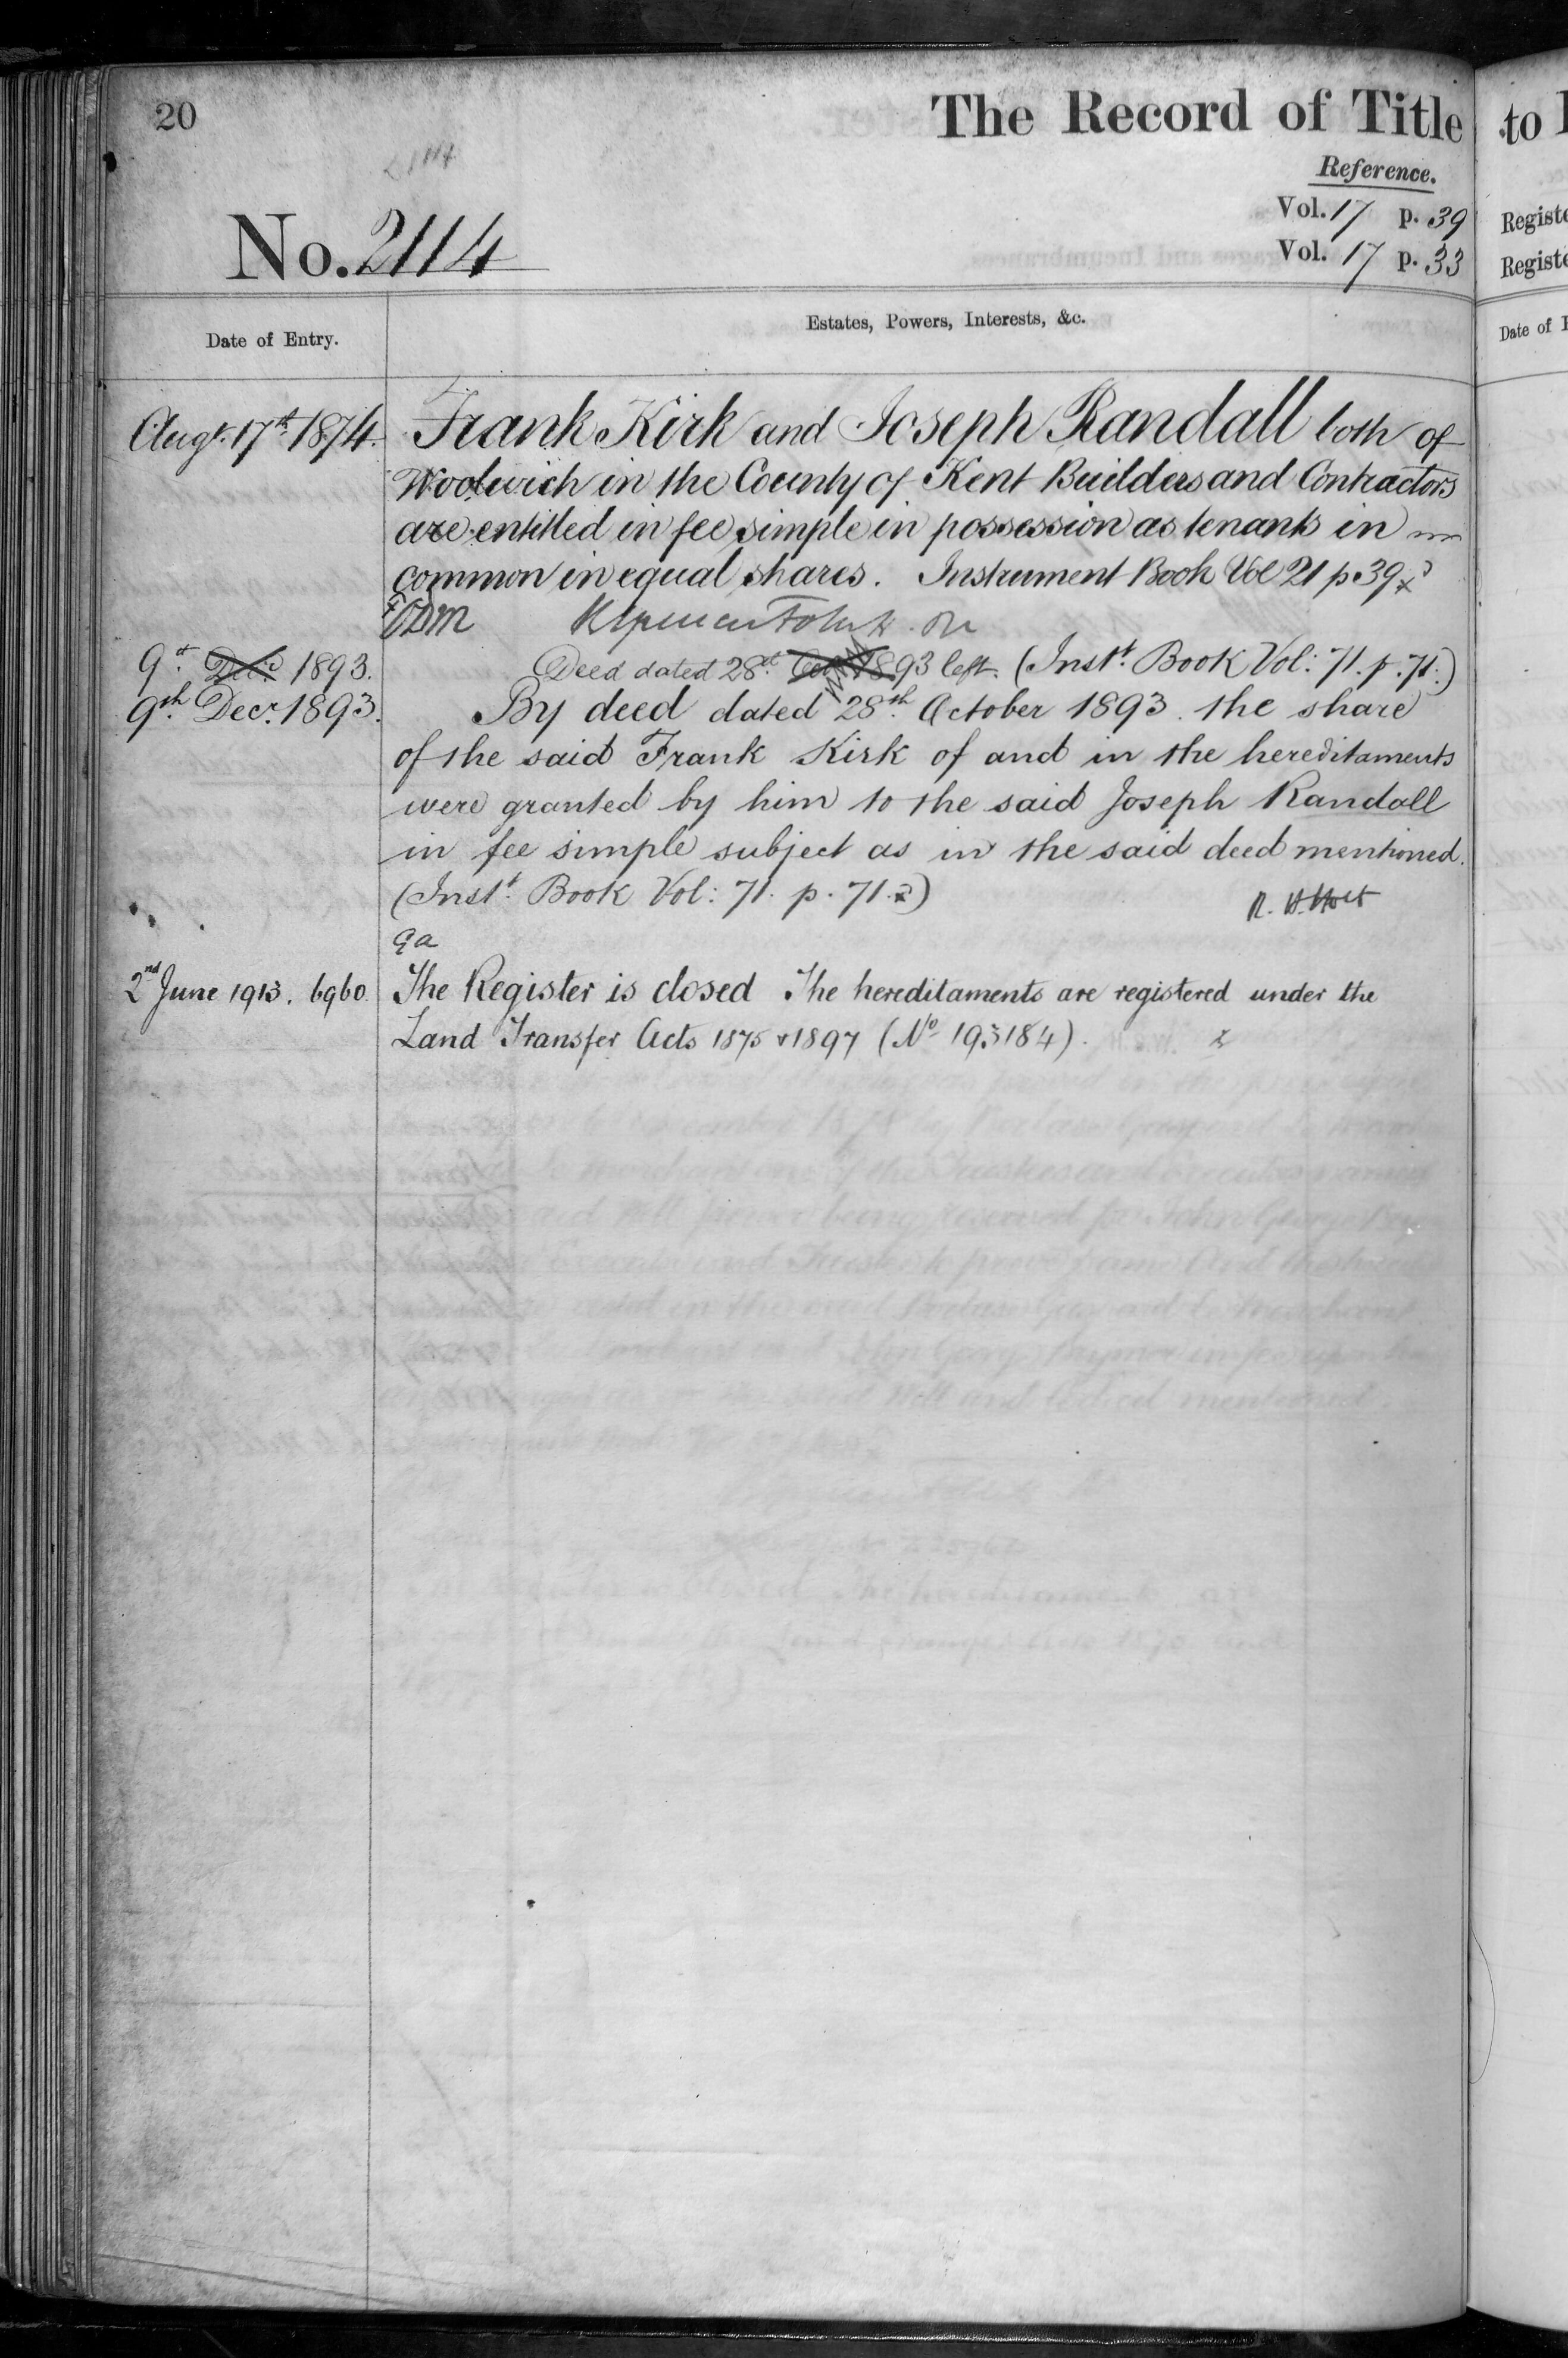 20
The Record of Title
Reference.
No. 2114
Vol. 17 p. 39
Vol. 17 p. 33
Date of Entry.
Estates, Powers, Interests, &c.
Augt. 17th 1874. Frank Kirk and Joseph Randall both of
Woolwich in the County of Kent Builders and Contractors
are entitled in fee simple in possession as tenants in
common in equal shares. Instrument Book Vol 21 p. 39
9th Decr 1893. Deed dated 28th Oct 1893 left. (Instt. Book Vol: 71. p. 71.)
9th Decr. 1893. By deed dated 28th October 1893. the share
of the said Frank Kirk of and in the hereditaments
were granted by him to the said Joseph Randall
in fee simple subject as in the said deed mentioned.
(Instt. Book Vol: 71. p. 71.)
R. H. Holt
2nd June 1913. 6960. The Register is closed The hereditaments are registered under the
Land Transfer Acts 1875 & 1897 (No 193184).
to
Registe
Registe
Date of